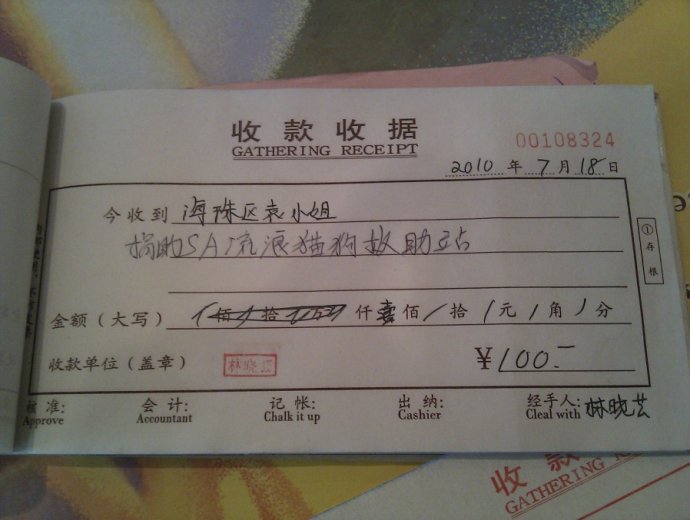 收款收据
GATHERING RECEIPT
00108324
2010 年 7 月 18 日
今收到 海珠区袁小姐
捐助SA流浪猫狗救助站
金额（大写） 佰 拾 万 仟 壹 佰 / 拾 / 元 / 角 / 分
收款单位（盖章） 林晓芸 ¥100.-
①存根
核准: 会计: 记帐: 出纳: 经手人: 林晓芸
Approve Accountant Chalk it up Cashier Cleal with
收款
GATHERING RE